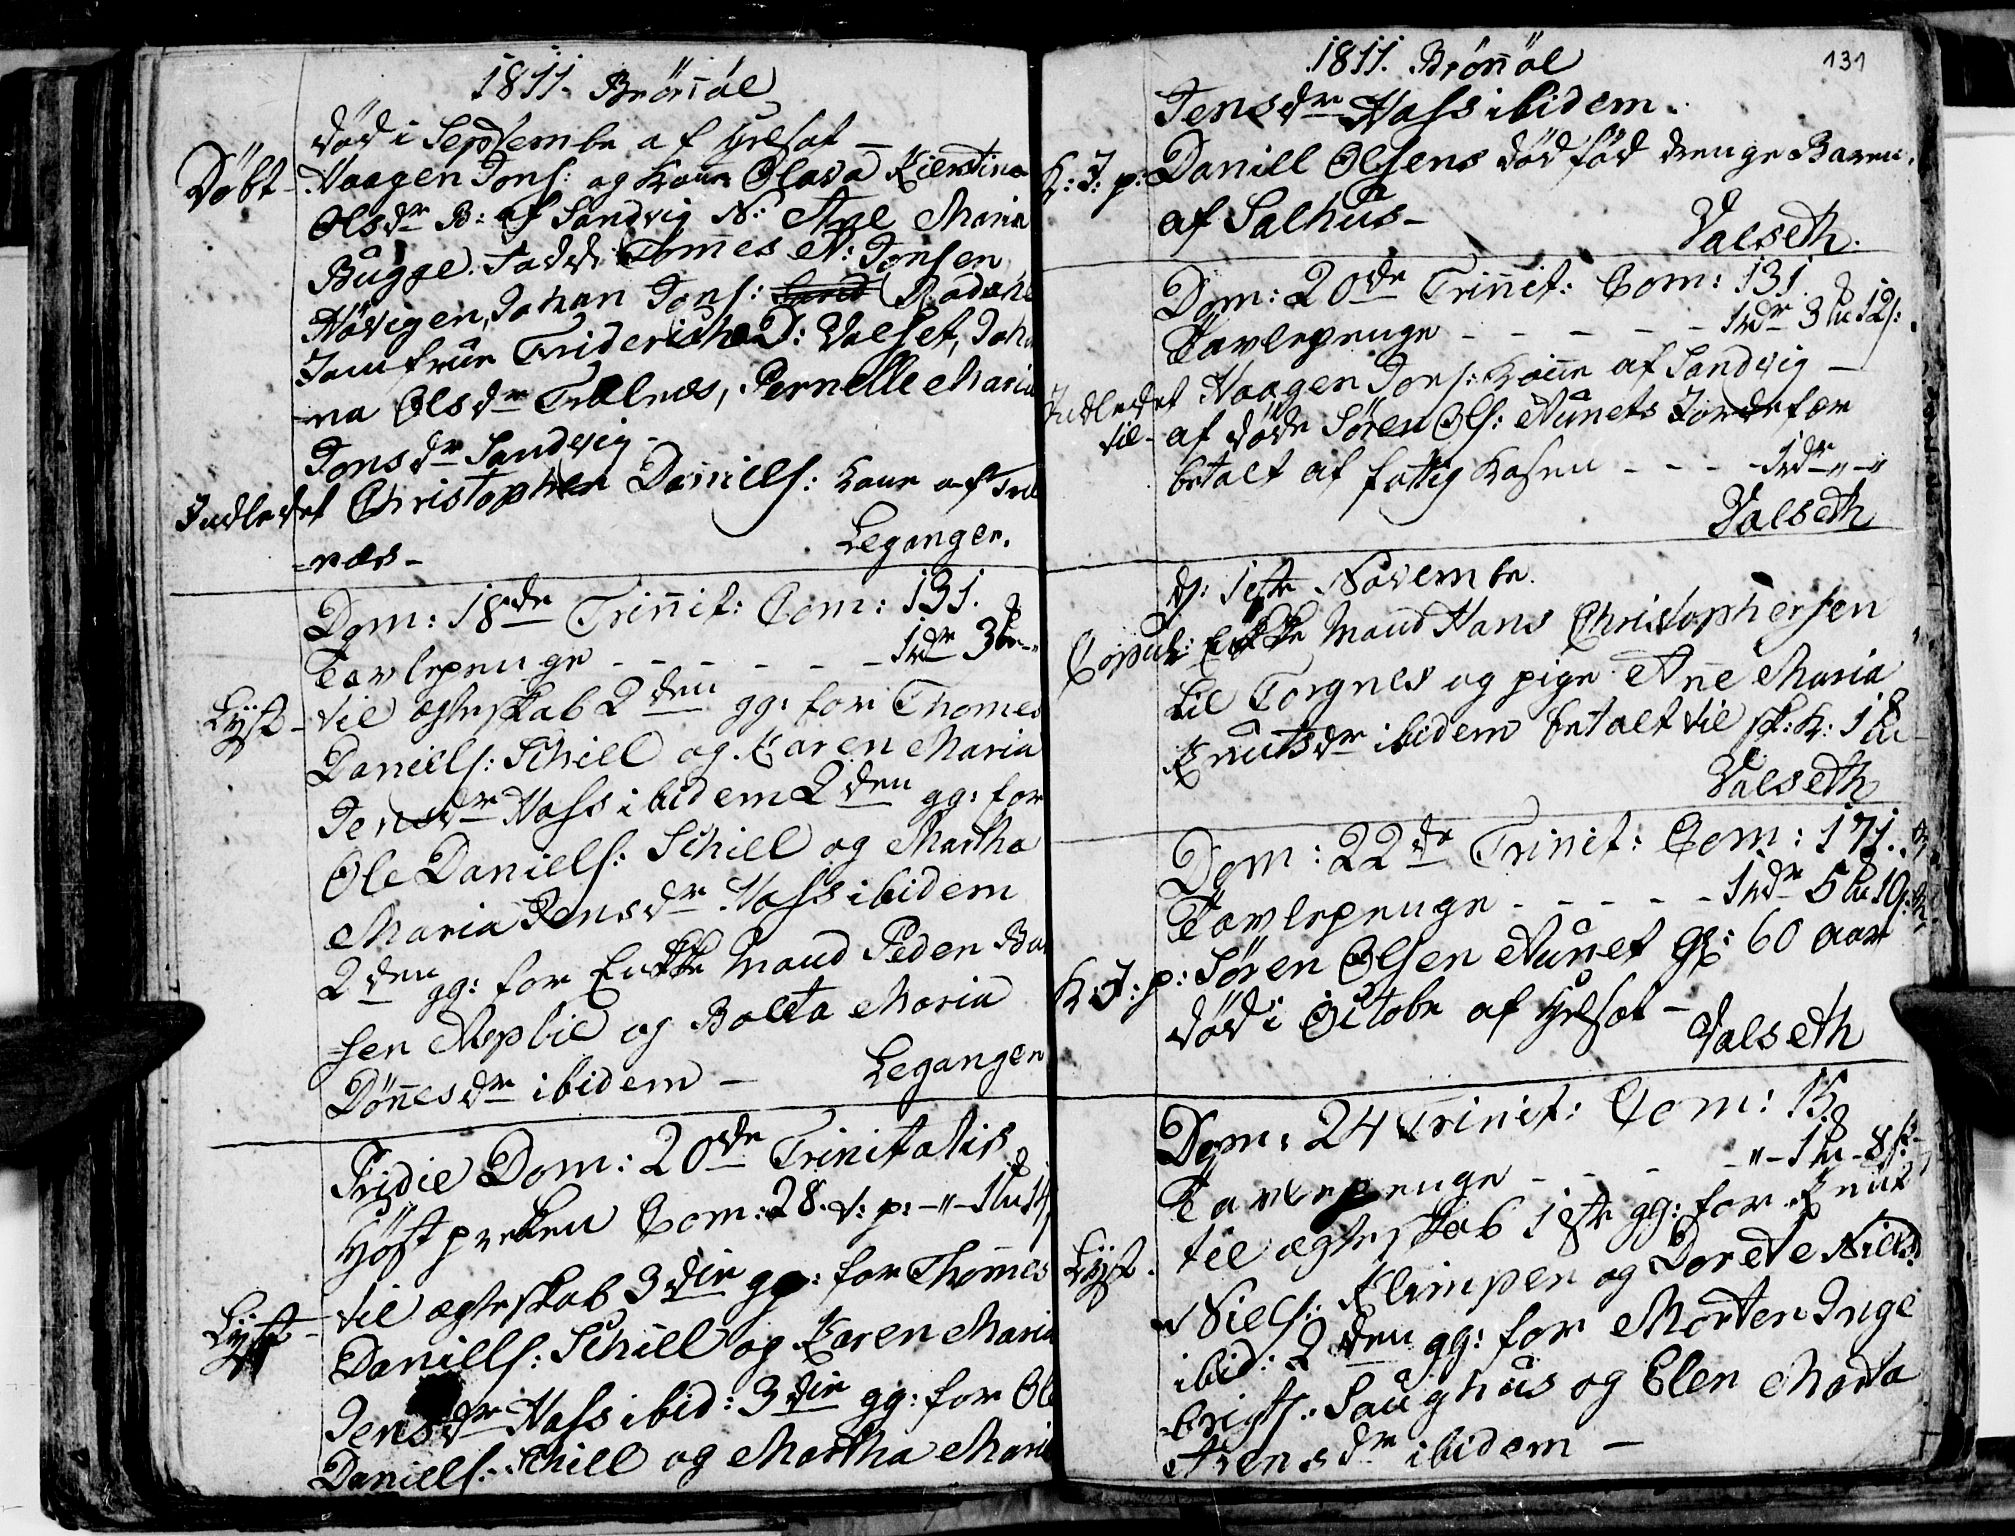 1811. Brönöe
död i Septembr af
Döbt - Haagen Jons: og Kone Olava Kierstina
Olsdr B: af Sandvig N: Ane Maria
Bugge. Fadd: Tomes N: Jonsen
Hövigen, Johan Jons: Rodahl
Jomfrue Fridericha D: Valset, Joha
na Olsdr Trælnæs, Pernelle Maria
Jonsdr Sandvig -
Indledet Christopher Daniels: kone af Træl
=næs - Legangen.
Dom: 18de Trinit: Com: 131.
Tavlepenge - - - - - - 1rdr 3
Lyst - til ægteskab 2den gg: for Thomes
Daniels: Schiell og Karen Maria
Jensdr Hass ibidem 2den gg: for
Ole Daniels: Schiell og Martha
Maria Jensdr Hass ibidem
2den gg: for Enkke Mand Peder
sen og Maria
Dönnesdr ibidem - Legangen
Pridie Dom: 20de Trinitatis
Höstpreken Com: 28. t: p: -"- 1
Lyst - til ægteskab 3die gg: for Thomes
Daniells: Schiell og Karen Maria
Jensdr Hass ibid: 3die gg: for Ole
Daniells: Schiell og Martha Maria
1811. Brönöe 131
Jensdr Hass ibidem.
K: J: p: Daniell Olsens död föd drenge Barn
af Salhus - Valseth.
Dom: 20de Trinnit: Com: 131
Tavlepenge - - - - - 1rdr 3 12s:
Indledet Haagen Jons: Kone af Sandvig -
til - af döde Sören Ols: Nunets Jordefær
betalt af fattig Kasen - - - 1rdr -"-"
Valseth
d: 1ste Novembr.
Copul: Enkke Mand Hans Christophersen
til Torgnes og pige Ane Maria
Knutsdr ibidem betalt til sk: K: 1
Valseth
Dom: 22de Trinit: Com: 171.
Tavlepenge - - - - - 1rdr 5
K: J: p: Sören Olsen Nunet gl: 60 aar
död i Octobr af
Valseth
Dom: 24 Trinit: Com: 15
Tavlepenge - - - -"- 1 - 8s:
Lyst - til ægteskab 1ste gg: for Knut
Niels: Klimpen og Dorete Nielsd
ibid: 2den gg: for Morten Inge
=brigts: Saughus og Elen Marta
Arensdr ibidem -